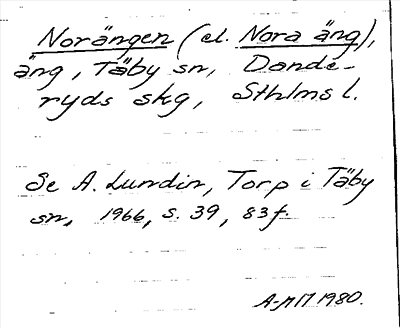 Norängen (el. Nora äng),
äng, Täby sn, Dande-
ryds skg, Sthlms l.
Se A. Lundin, Torp i Täby
sn, 1966, s. 39, 83f.
A-MM 1980.